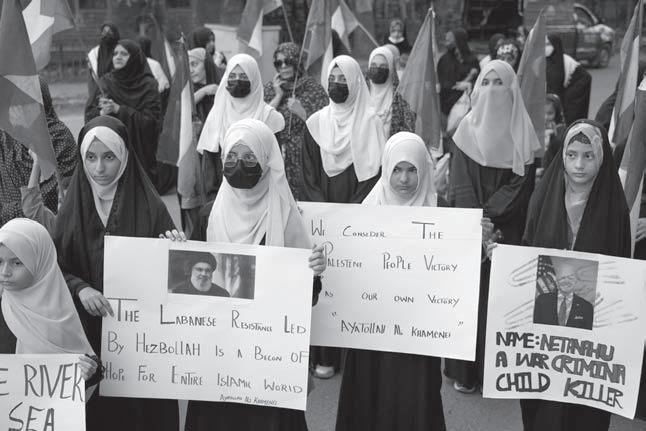 E RIVER
SEA
THE LABANESE RESISTANCE LED
BY HEZBOLLAH IS A BECON OF
HOPE FOR ENTIRE ISLAMIC WORLD
AYATOLLAH AL KHAMENEI
WE CONSIDER THE
PALESTENE PEOPLE VICTORY
AS OUR OWN VICTORY
"AYATOLLAH AL KHAMENEI"
NAME: NETANYAHU
A WAR CRIMINA
CHILD KILLER